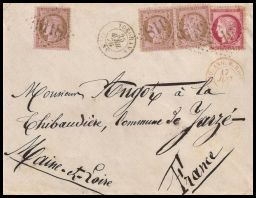 Monsieur Angot à la
Thibaudière, Commune de Jarzé
Maine-et-Loire
France